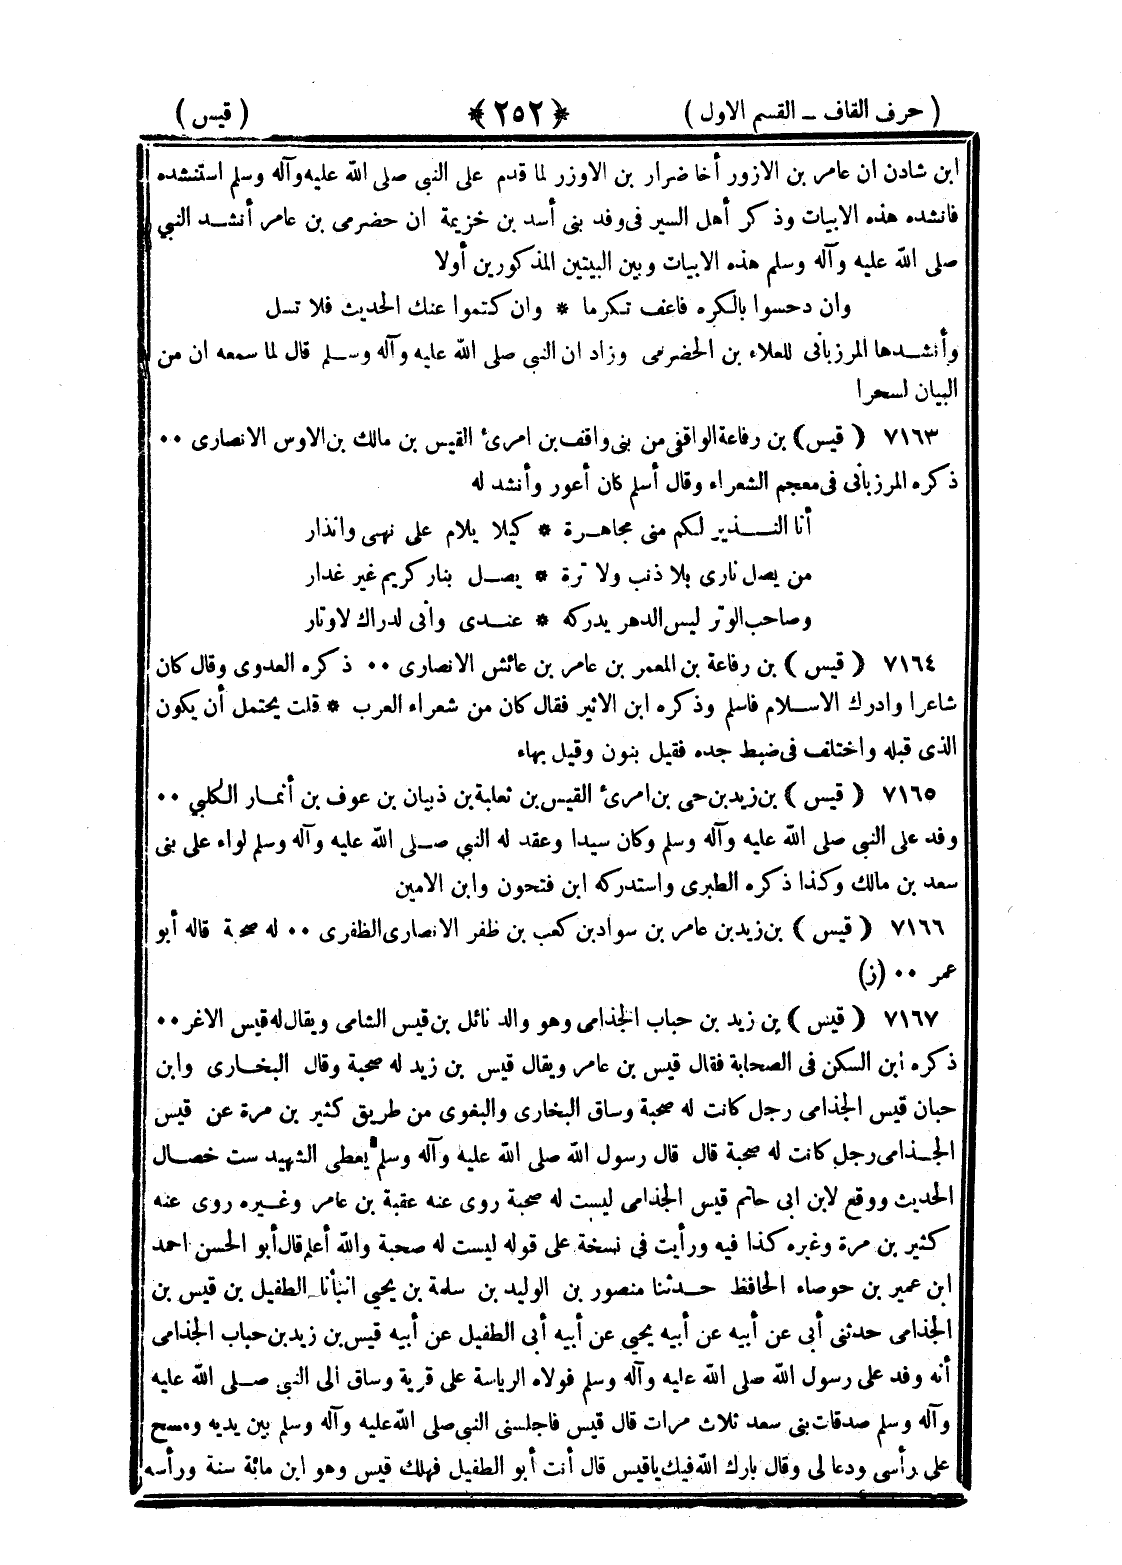 ( حرف القاف ـ القسم الاول ) ﴿٢٥٢﴾ ( قيس )
ابن شادن ان عامر بن الازور أخا ضرار بن الاوزر لما قدم على النبى صلى الله عليه وآله وسلم استنشده
فانشده هذه الابيات وذكر أهل السير فى وفد بنى أسد بن خزيمة ان حضرمى بن عامر أنشد النبي
صلى الله عليه وآله وسلم هذه الابيات وبين البيتين المذكورين أولا
وان دحسوا بالكره فاعف تكرما * وان كتموا عنك الحديث فلا تسل
وأنشدها المرزبانى للعلاء بن الحضرمى وزاد ان النبى صلى الله عليه وآله وسلم قال لما سمعه ان من
البيان لسحرا
٧١٦٣ ( قيس ) بن رفاعة الواقفى من بنى واقف بن امرئ القيس بن مالك بن الاوس الانصارى ٠٠
ذكره المرزبانى فى معجم الشعراء وقال أسلم كان أعور وأنشد له
أنا النذير لكم منى مجاهرة * كيلا يلام على نهى وانذار
من يصل نارى بلا ذنب ولا ترة * يصل بنار كريم غير غدار
وصاحب الوتر ليس الدهر يدركه * عندى وانى لدراك لاوتار
٧١٦٤ ( قيس ) بن رفاعة بن المعمر بن عامر بن عائش الانصارى ٠٠ ذكره العدوى وقال كان
شاعرا وادرك الاسلام فاسلم وذكره ابن الاثير فقال كان من شعراء العرب * قلت يحتمل أن يكون
الذى قبله واختلف فى ضبط جده فقيل بنون وقيل بهاء
٧١٦٥ ( قيس ) بن زيد بن حى بن امرئ القيس بن ثعلبة بن ذبيان بن عوف بن أنمار الكلبي ٠٠
وفد على النبى صلى الله عليه وآله وسلم وكان سيدا وعقد له النبي صلى الله عليه وآله وسلم لواء على بنى
سعد بن مالك وكذا ذكره الطبرى واستدركه ابن فتحون وابن الامين
٧١٦٦ ( قيس ) بن زيد بن عامر بن سواد بن كعب بن ظفر الانصارى الظفرى ٠٠ له صحبة قاله أبو
عمر ٠٠ (ز)
٧١٦٧ ( قيس ) بن زيد بن حباب الجذامى وهو والد نائل بن قيس الشامى ويقال له قيس الاغر ٠٠
ذكره ابن السكن فى الصحابة فقال قيس بن عامر ويقال قيس بن زيد له صحبة وقال البخارى وابن
حبان قيس الجذامى رجل كانت له صحبة وساق البخارى والبغوى من طريق كثير بن مرة عن قيس
الجذامى رجل كانت له صحبة قال قال رسول الله صلى الله عليه وآله وسلم يعطى الشهيد ست خصال
الحديث ووقع لابن ابى حاتم قيس الجذامى ليست له صحبة روى عنه عقبة بن عامر وغيره روى عنه
كثير بن مرة وغيره كذا فيه ورأيت فى نسخة على قوله ليست له صحبة والله أعلم قال أبو الحسن احمد
ابن عمير بن حوصاء الحافظ حدثنا منصور بن الوليد بن سلمة بن يحيى انبأنا الطفيل بن قيس بن
الجذامى حدثنى أبى عن أبيه عن أبيه يحيي عن أبيه أبى الطفيل عن أبيه قيس بن زيد بن حباب الجذامى
أنه وفد على رسول الله صلى الله عليه وآله وسلم فولاه الرياسة على قرية وساق الى النبى صلى الله عليه
وآله وسلم صدقات بنى سعد ثلاث مرات قال قيس فاجلسنى النبى صلى الله عليه وآله وسلم بين يديه ومسح
على رأسى ودعا لى وقال بارك الله فيك ياقيس قال أنت أبو الطفيل فهلك قيس وهو ابن مائة سنة ورأسه